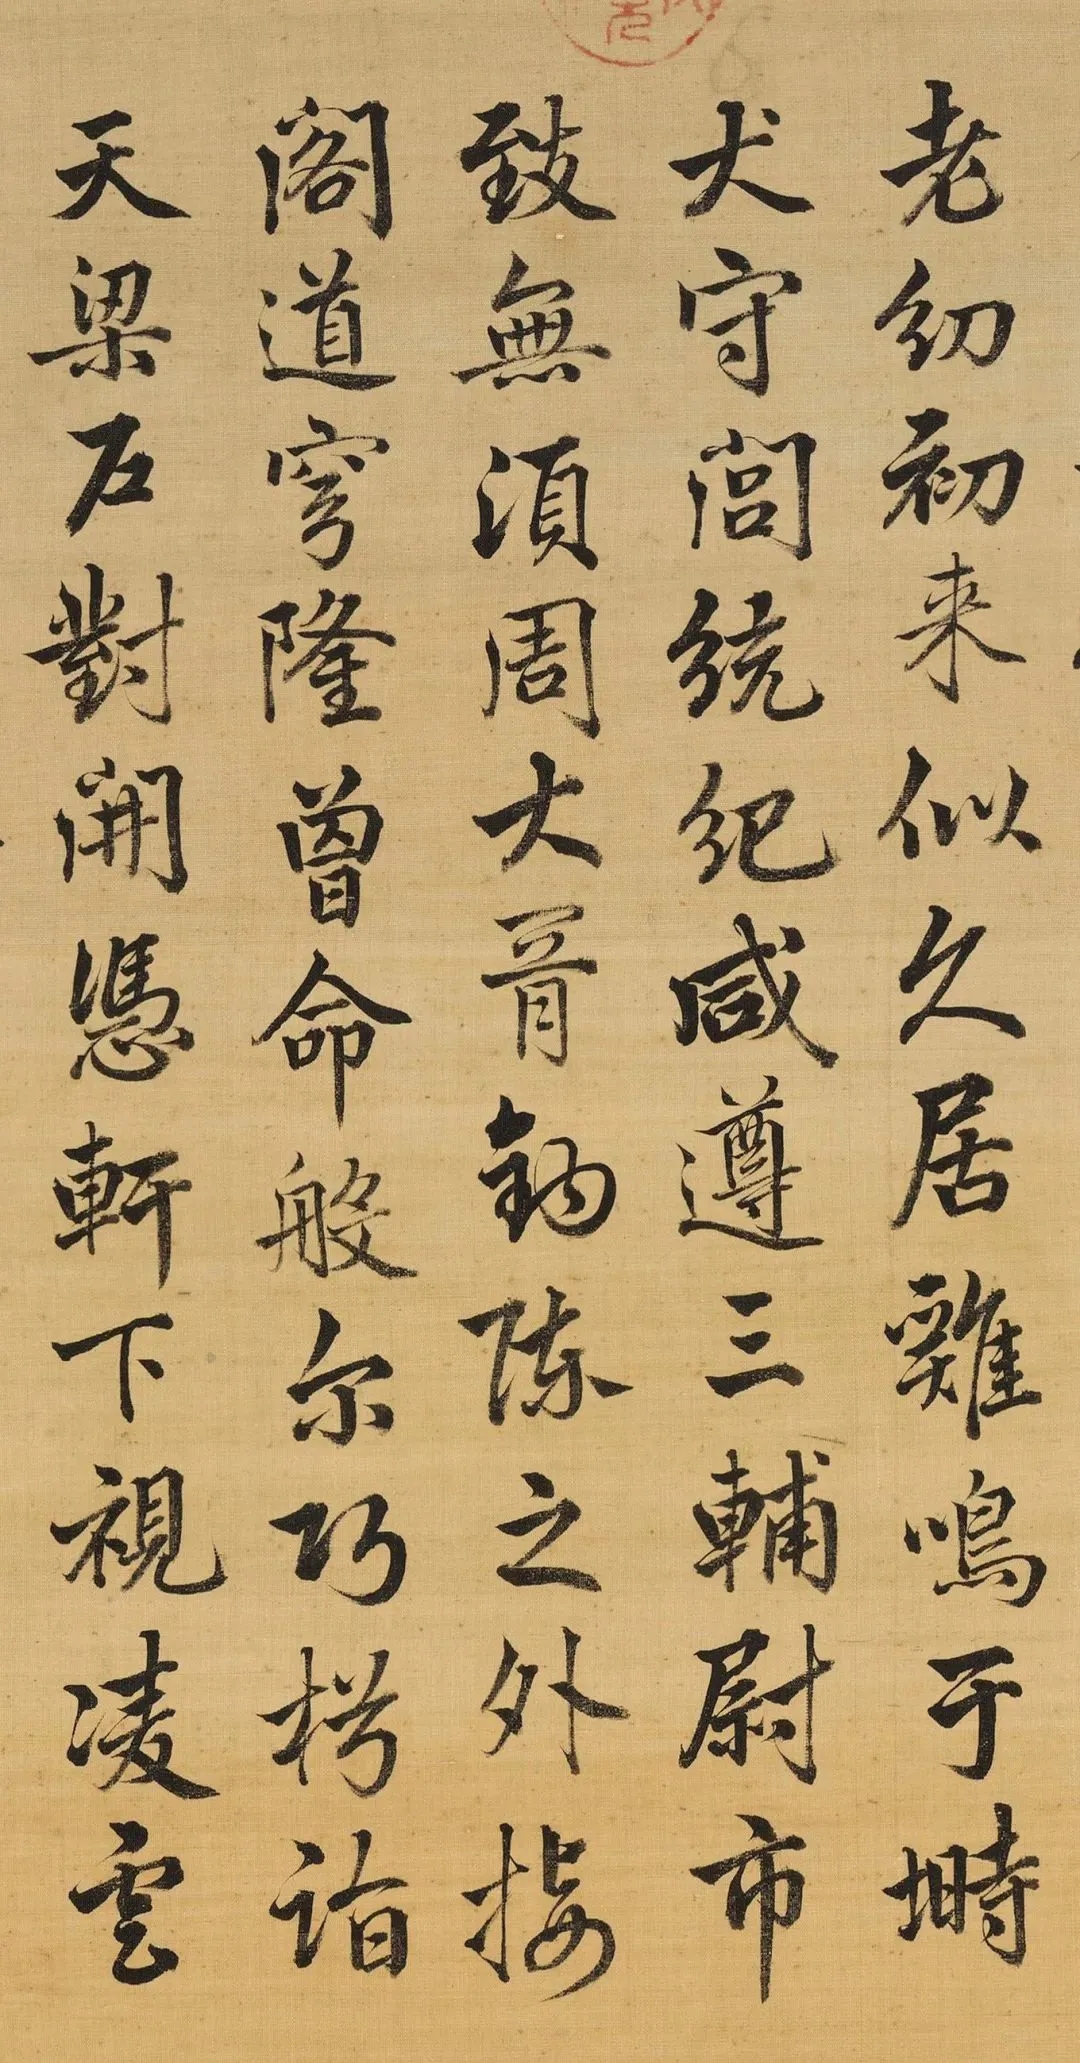 老幼初来似久居雞鳴于塒
犬守閭統紀咸遵三輔尉市
致無須周大胥鈎陳之外接
阁道穹隆曾命般尔巧構詣
天梁石對開憑軒下視凌雲